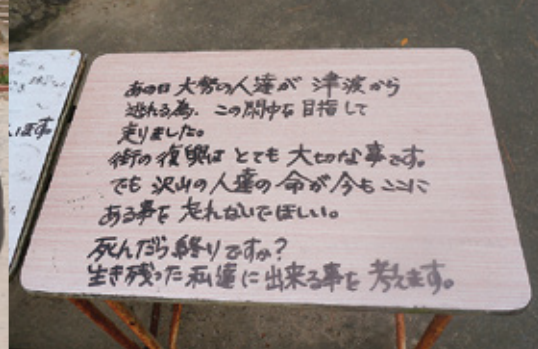 あの日 大勢の人達が 津波から
逃れる為、この閖中を 目指して
走りました。
街の復興は とても 大切な事です。
でも 沢山の人達の 命が今も ここに
ある事を 忘れないでほしい。
死んだら終りですか？
生き残った 私達に 出来る事を 考えます。
います。